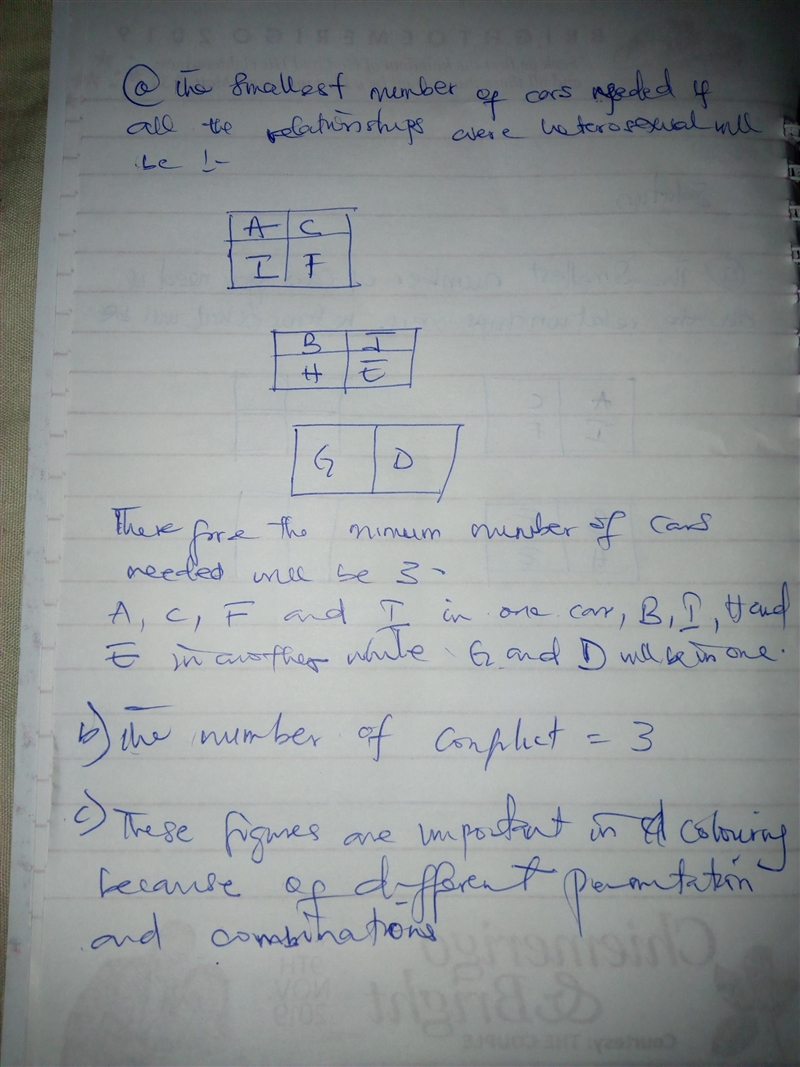 BRIGHTOEMERIGO 2019
(a) The Smallest number of cars needed if
all the relationships were heterosexual will
be :-
A C
I F
B J
H E
G D
Therefore the nimum number of cars
needed will be 3-
A, C, F and I in one car, B, I, H and
E in another while G and D will be in one.
b) The number of conflict = 3
c) These figures are important in colouring
because of different permutation
and combinations
Chiemerigo
& Bright
9TH
NOV
2019
Courtesy: THE COUPLE